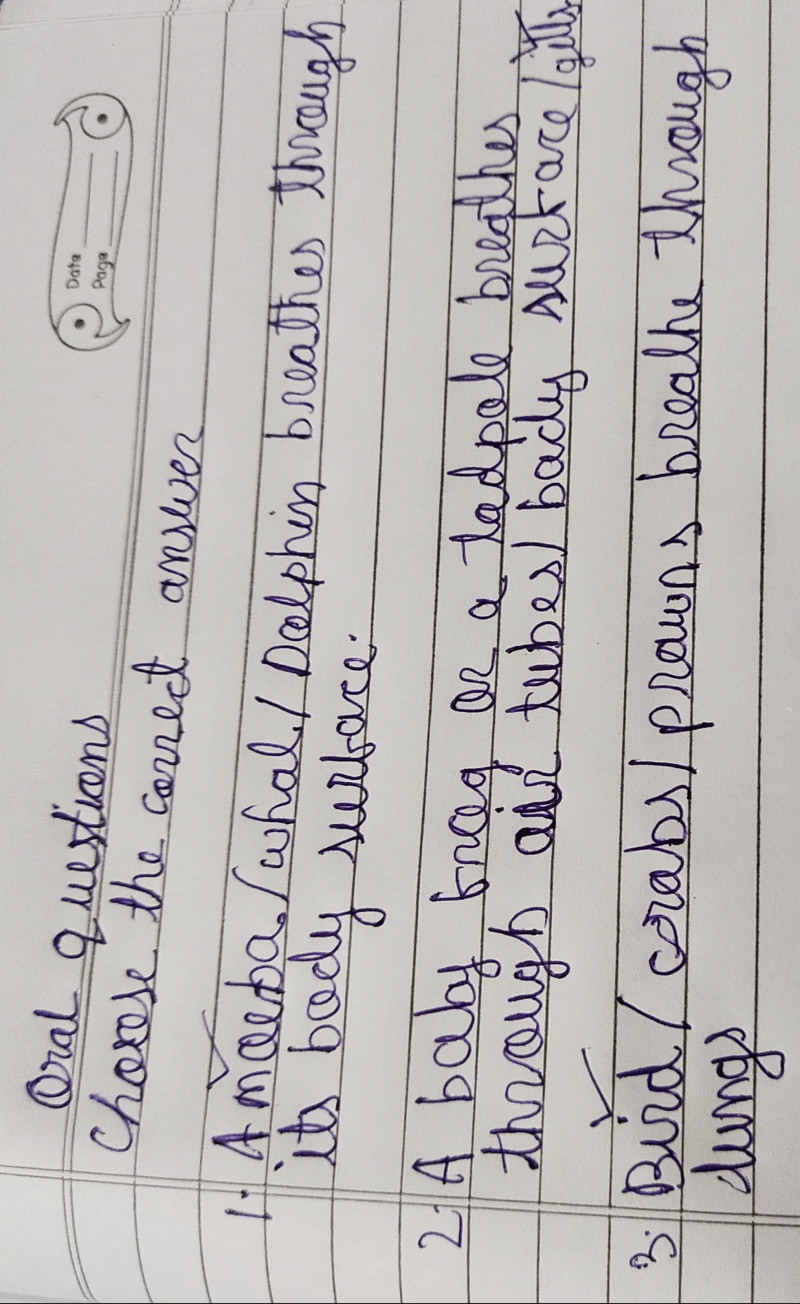 Date
Page
Oral questions
Choose the correct answer
1. Amoeba / whal / Dolphin breathes through
its body surface.
2. A baby frog or a tadpole breathes
through air tubes / body surface / gills
3. Bird / crabs / prawns breathe through
lungs